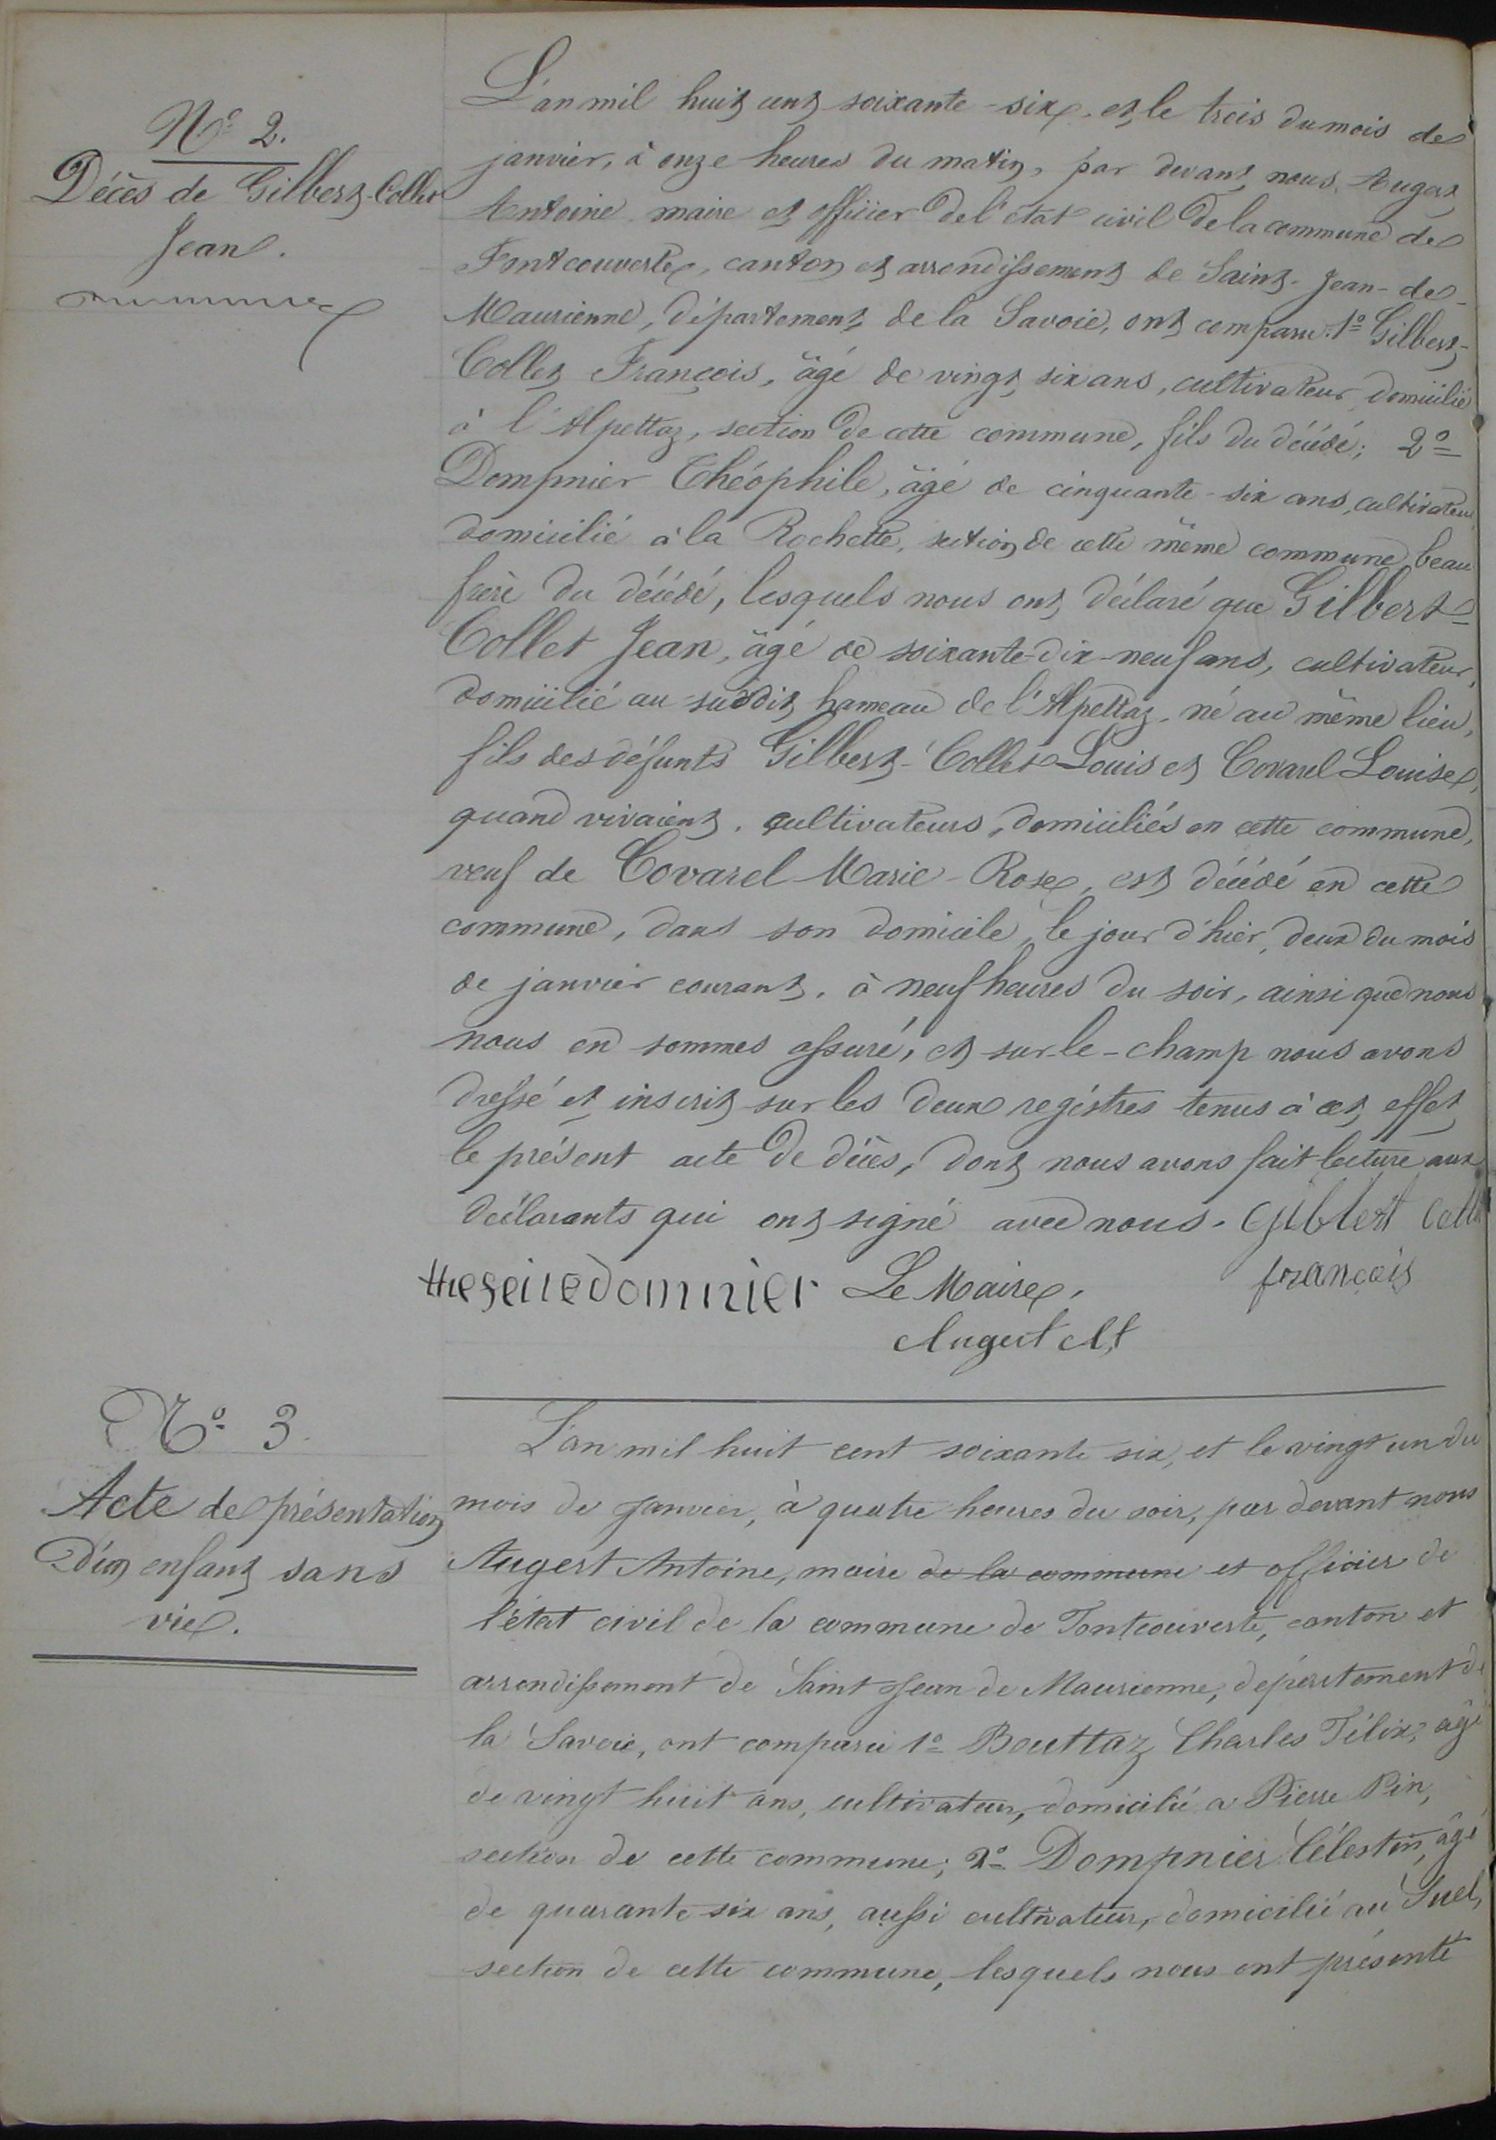 N° 2.
Décès de Gilbert-Collet
Jean.
L'an mil huit cent soixante-six, et le trois du mois de
janvier, à onze heures du matin, par devant nous, Augert
Antoine maire et officier de l'état civil de la commune de
Fontcouverte, canton et arrondissement de Saint-Jean-de-
Maurienne, département de la Savoie, ont comparu: 1° Gilbert-
Collet François, âgé de vingt six ans, cultivateur domicilié
à l'Alpettaz, section de cette commune, fils du décédé; 2°
Dompnier Théophile, âgé de cinquante-six ans, cultivateur
domicilié à la Rochette, section de cette même commune, beau
frère du décédé, lesquels nous ont déclaré que Gilbert-
Collet Jean, âgé de soixante-dix-neuf ans, cultivateur,
domicilié au susdit hameau de l'Alpettaz, né au même lieu,
fils des défunts Gilbert-Collet Louis et Covarel Louise,
quand vivaient, cultivateurs, domiciliés en cette commune,
veuf de Covarel Marie-Rose, est décédé en cette
commune, dans son domicile, le jour d'hier, deux du mois
de janvier courant, à neuf heures du soir, ainsi que nous
nous en sommes assuré, et sur-le-champ nous avons
dressé et inscrit sur les deux registres tenus à cet effet
le présent acte de décès, dont nous avons fait lecture aux
déclarants qui ont signé avec nous. Gilbert Collet
domnier Le Maire, françois
Augert At
N° 3
Acte de présentation
d'un enfant sans
vie.
L'an mil huit cent soixante six, et le vingt un du
mois de Janvier, à quatre heures du soir, par devant nous
Augert Antoine, maire de la commune et officier de
l'état civil de la commune de Fontcouverte, canton et
arrondissement de Saint Jean de Maurienne, département de
la Savoie, ont comparu 1° Bouttaz Charles Félix, âgé
de vingt huit ans, cultivateur, domicilié à Pierre Pin,
section de cette commune; 2° Dompnier Célestin, âgé
de quarante-six ans, aussi cultivateur, domicilié au Suel,
section de cette commune, lesquels nous ont présenté